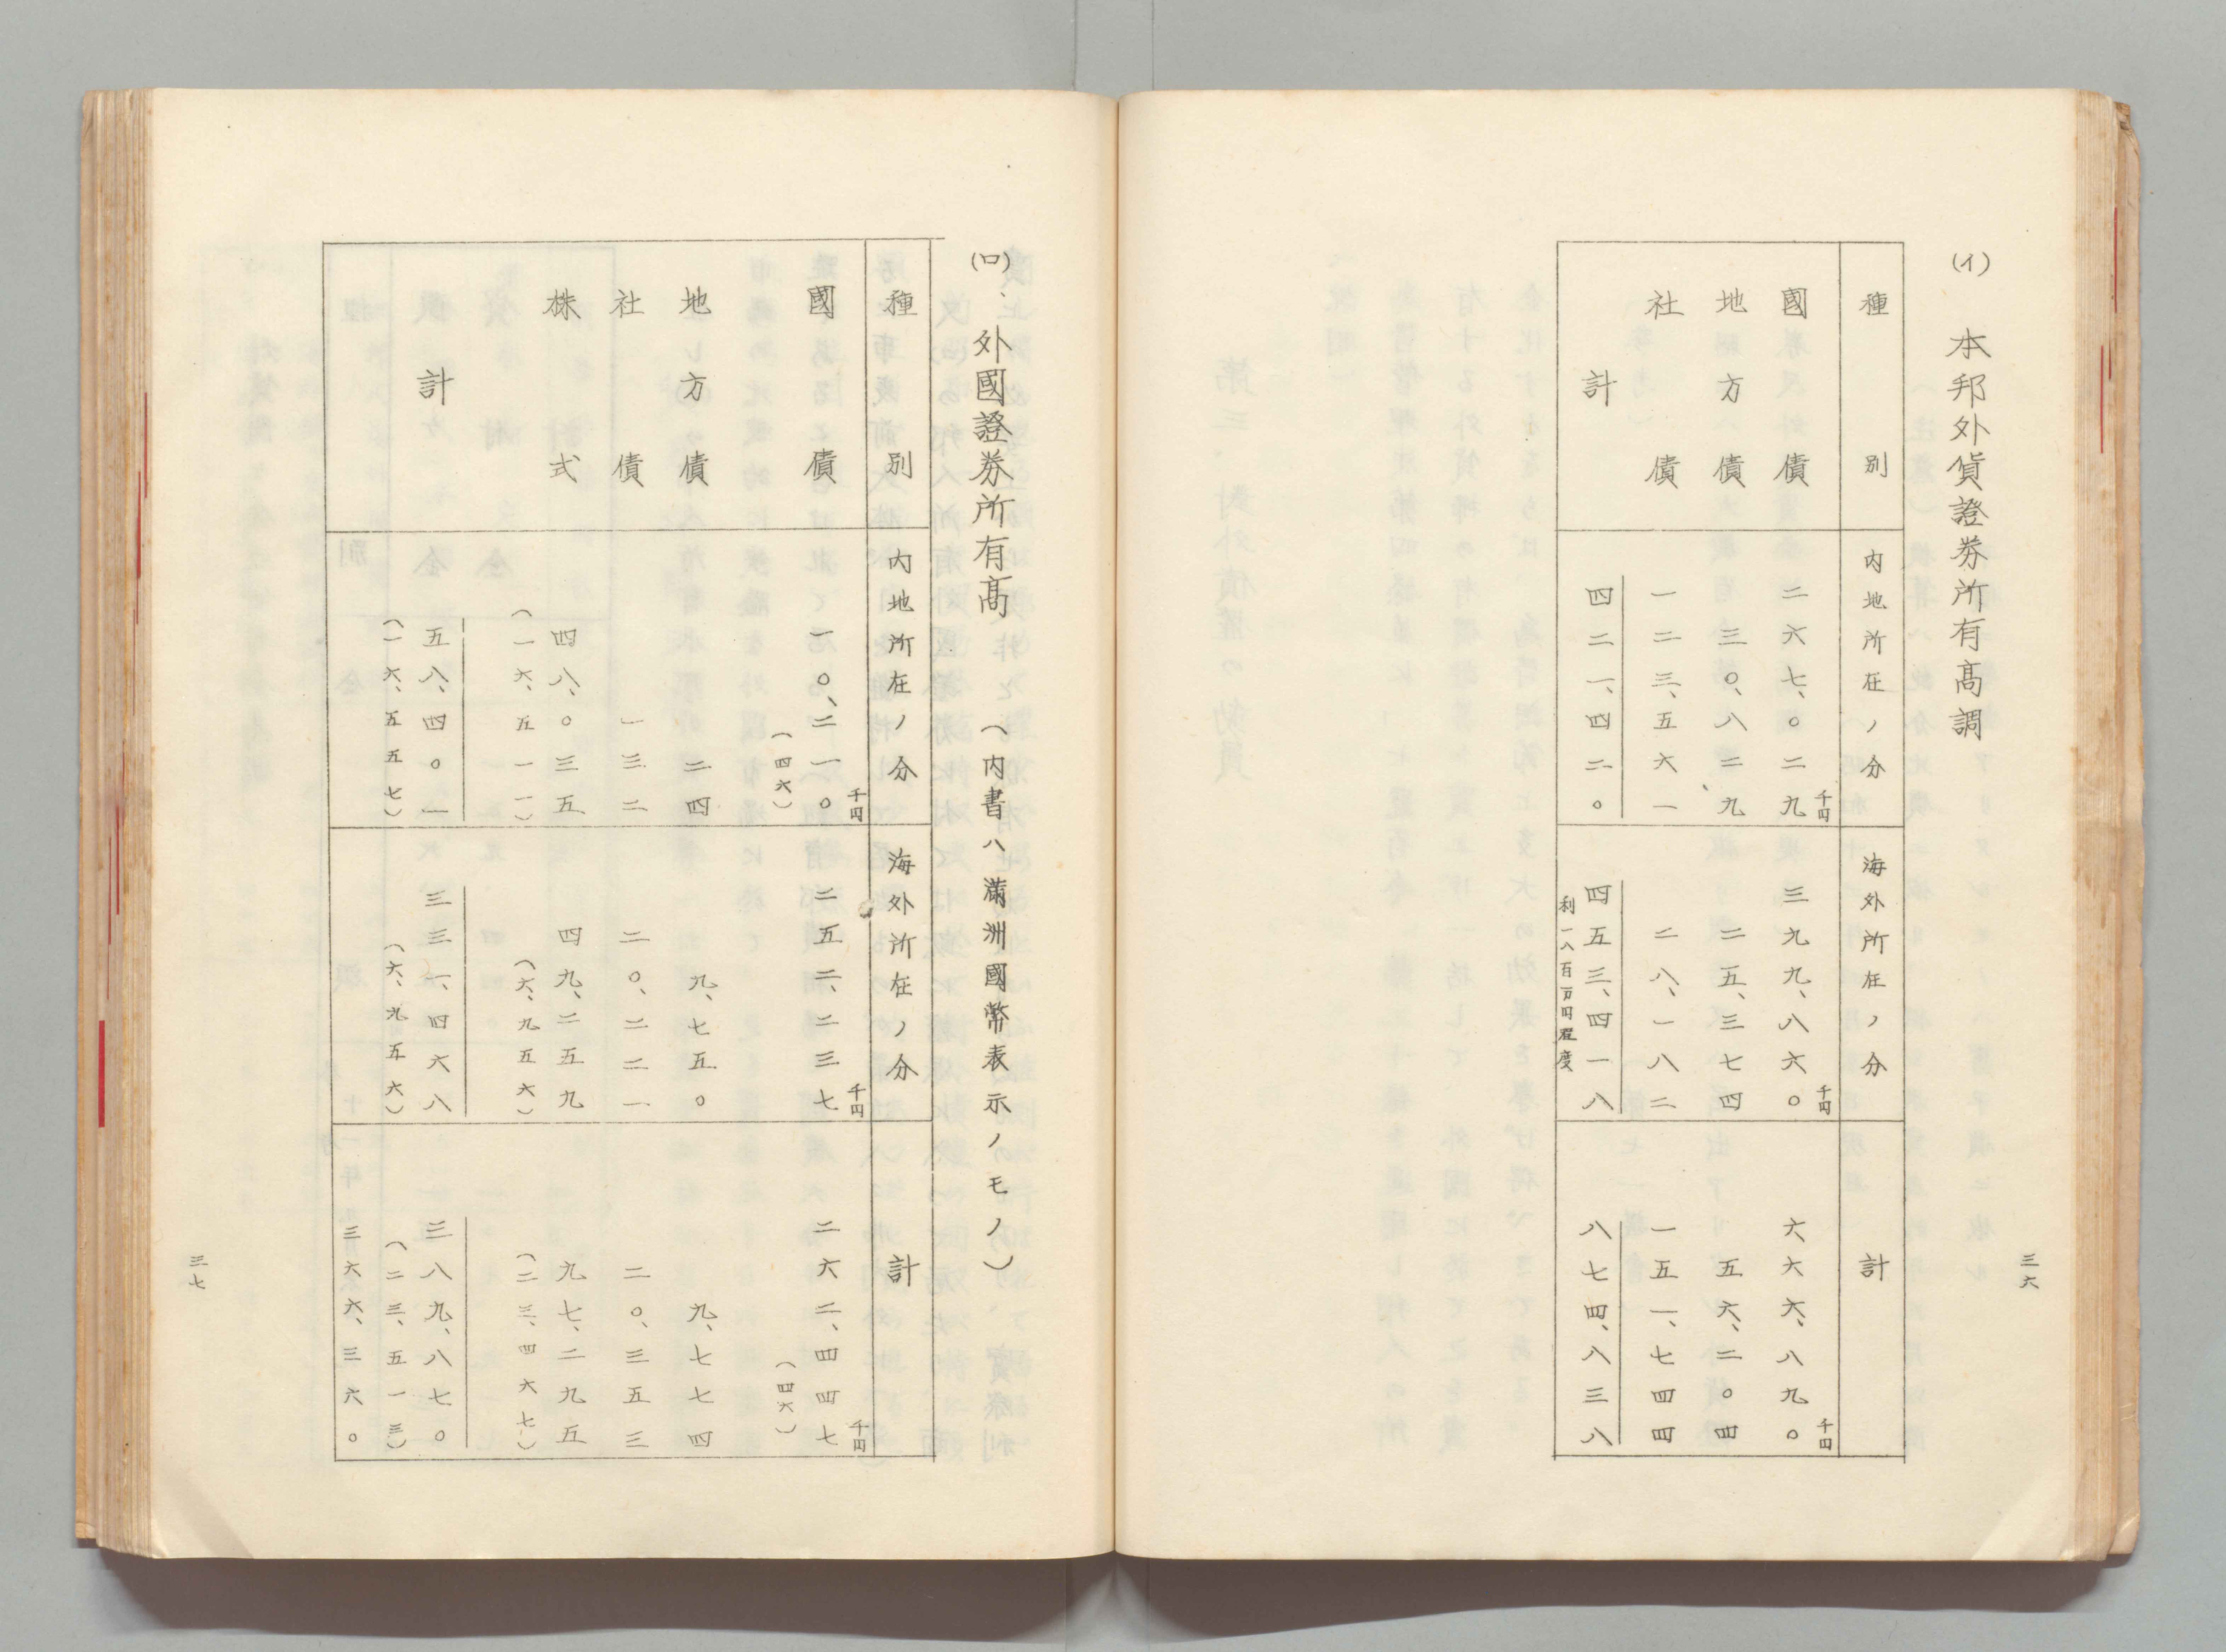 三六
(イ) 本邦外貨證券所有高調
種別 内地所在ノ分 海外所在ノ分 計
千円 千円 千円
國債 二六七、〇二九 三九九、八六〇 六六六、八九〇
地方債 三〇、八二九 二五、三七四 五六、二〇四
社債 一二三、五六一 二八、一八二 一五一、七四四
計 四二一、四二〇 四五三、四一八 八七四、八三八
利一八百万円程度
(ロ)、外國證券所有高(内書ハ滿洲國幣表示ノモノ)
種別 内地所在ノ分 海外所在ノ分 計
千円 千円 千円
國債 一〇、二一〇 二五二、二三七 二六二、四四七
(四六) (四六)
地方債 二四 九、七五〇 九、七七四
社債 一三二 二〇、二二一 二〇、三五三
株式 四八、〇三五 四九、二五九 九七、二九五
(一六、五一一) (六、九五六) (二三、四六七)
計 五八、四〇一 三三一、四六八 三八九、八七〇
(一六、五五七) (六、九五六) (二三、五一三)
三六六、三六〇
三七